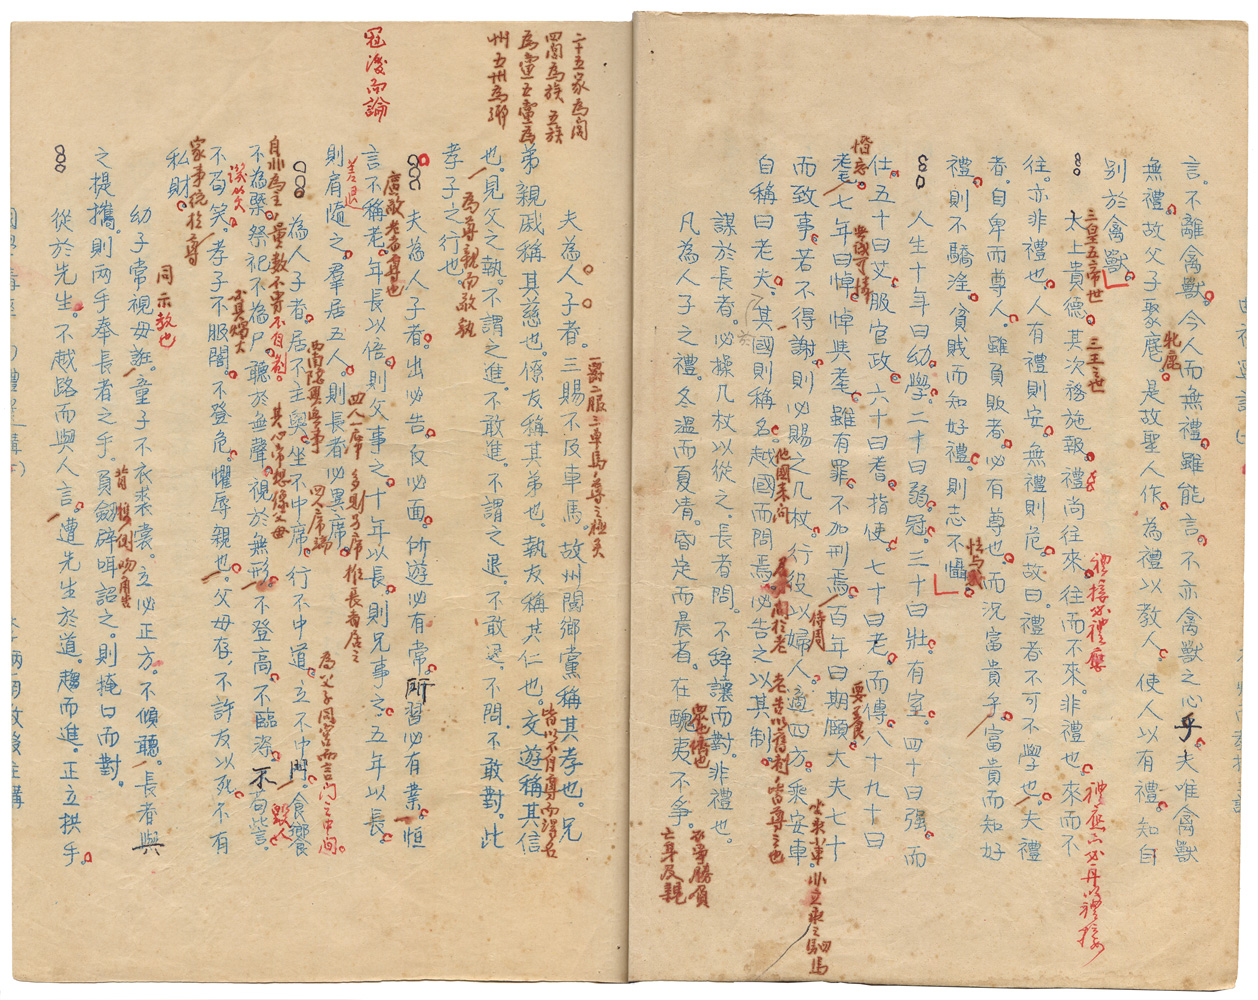 言。不離禽獸。今人而無禮。雖能言。不亦禽獸之心乎。夫唯禽獸
無禮。故父子聚麀。是故聖人作。為禮以教人。使人以有禮。知自
牝鹿
別於禽獸。
太上貴德。其次務施報。禮尚往來。往而不來。非禮也。來而不
三皇五帝世 三王之世
禮接必禮應
禮應亦必再以禮接
往。亦非禮也。人有禮則安。無禮則危。故曰。禮者不可不學也。夫禮
者。自卑而尊人。雖負販者。必有尊也。而況富貴乎。富貴而知好
禮。則不驕淫。貧賤而知好禮。則志不懾。
人生十年曰幼學。二十曰弱冠。三十曰壯。有室。四十曰强。而
仕。五十曰艾。服官政。六十曰耆。指使。七十曰老。而傳。八十九十曰
耄。七年曰悼。悼與耄。雖有罪。不加刑焉。百年曰期頤。大夫七十
惛忘
要養
而致事。若不得謝。則必賜之几杖。行役以婦人。適四方。乘安車。
坐乘小車 小立乘之駟馬
自稱曰老夫。其國則稱名。越國而問焉。必告之以其制。
他國來問
謀於長者。必操几杖以從之。長者問。不辭讓而對。非禮也。
凡為人子之禮。冬溫而夏凊。昏定而晨省。在醜夷不爭。
不爭勝負
亡身及親
二十五家為閭
四閭為族 五族
為黨五黨為
州五州為鄉
夫為人子者。三賜不及車馬。故州閭鄉黨稱其孝也。兄
一爵二服三車馬尊之極矣
弟親戚稱其慈也。僚友稱其弟也。執友稱其仁也。交遊稱其信
也。見父之執。不謂之進。不敢進。不謂之退。不敢退。不問。不敢對。此
為尊親而敬執
孝子之行也。
夫為人子者。出必告。反必面。所遊必有常。所習必有業。恒
廣敬老者尊也
言不稱老。年長以倍。則父事之。十年以長。則兄事之。五年以長。
冠後而論
則肩隨之。羣居五人。則長者必異席。
差退
四人一席 多則另席推長者居之
為人子者。居不主奧。坐不中席。行不中道。立不中門。食饗
四人席端
為父子同宮而言 門之中間
不為槩。祭祀不為尸。聽於無聲。視於無形。不登高。不臨深。不苟訾。
其心常想像父母
毀人
不苟笑。孝子不服闇。不登危。懼辱親也。父母存。不許友以死。不有
私財。
家事統於尊
幼子常視毋誑。童子不衣裘裳。立必正方。不傾聽。長者與
同示教也
之提攜。則兩手奉長者之手。負劍辟咡詔之。則掩口而對。
從於先生。不越路而與人言。遭先生於道。趨而進。正立拱手。